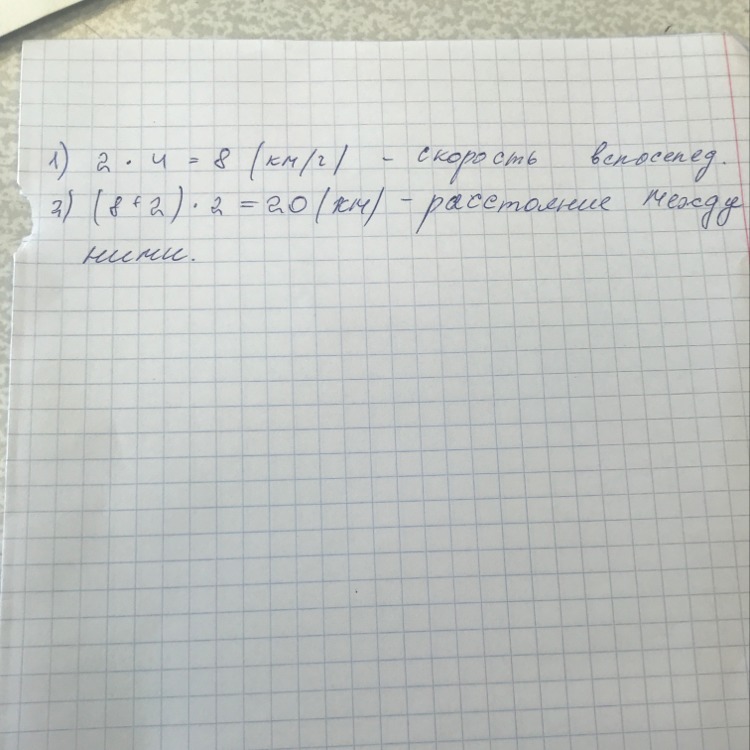 1) 2 · 4 = 8 (км/ч) - скорость велосепед.
2) (8+2) · 2 = 20 (км) - расстояние между
ними.